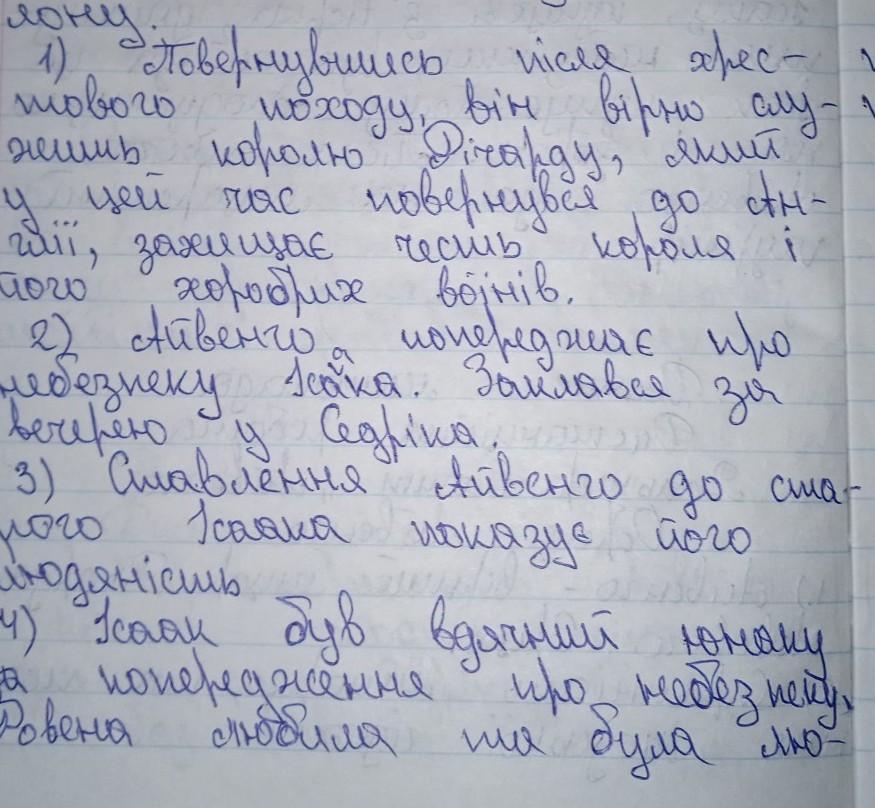 лону.
1) Повернувшись після хрес-
тового походу, він вірно слу-
жить королю Річарду, який
у цей час повернувся до Ан-
глії, захищає честь короля і
його хоробрих воїнів.
2) Айвенго попереджає про
небезпеку Ісаака. Заклався за
вечерею у Седріка.
3) Ставлення Айвенго до ста-
рого Ісаака показує його
людяність
4) Ісаак був вдячний юнаку
за попередження про небезпеку,
Ровена любила та була лю-